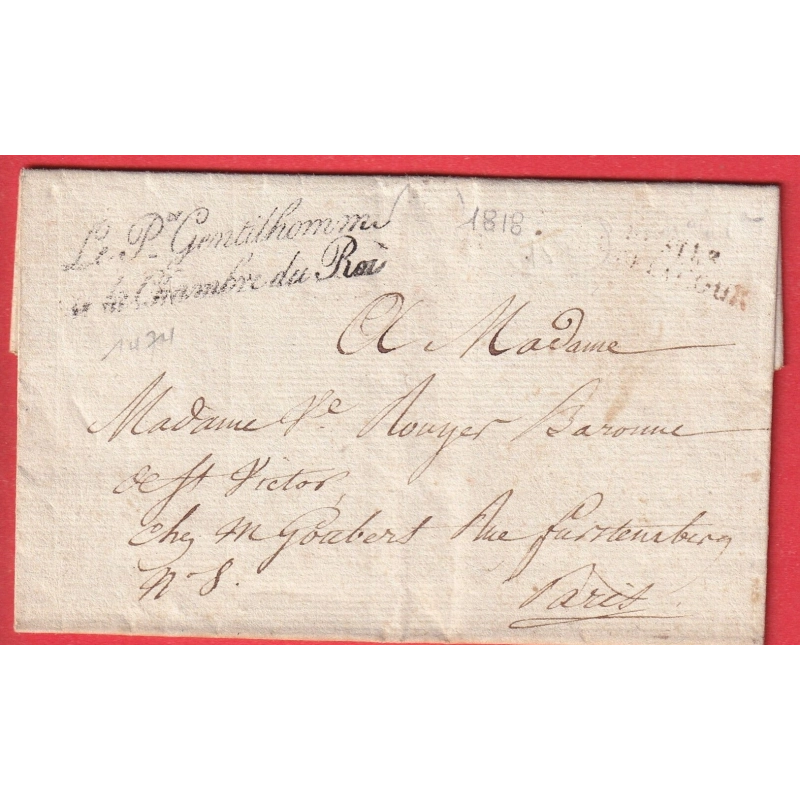 Le P.er Gentilhomme
de la Chambre du Roi
1818
1424
A Madame
Madame Ve Rouyer Baronne
de St Victor
chez M Goabert Rue furstemberg
N° 8.
Paris